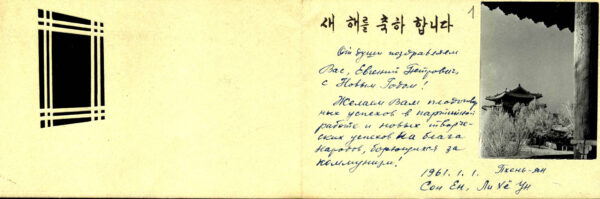 1
새 해를 축하 합니다
От души поздравляем
Вас, Евгений Петрович,
с Новым Годом!
Желаем Вам плодотвор-
ных успехов в партийной
работе и новых творче-
ских успехов на благо
народов, борющихся за
коммунизм!
1961. 1. 1. Пхень-ян
Сон Ен, Ли Хё Ун